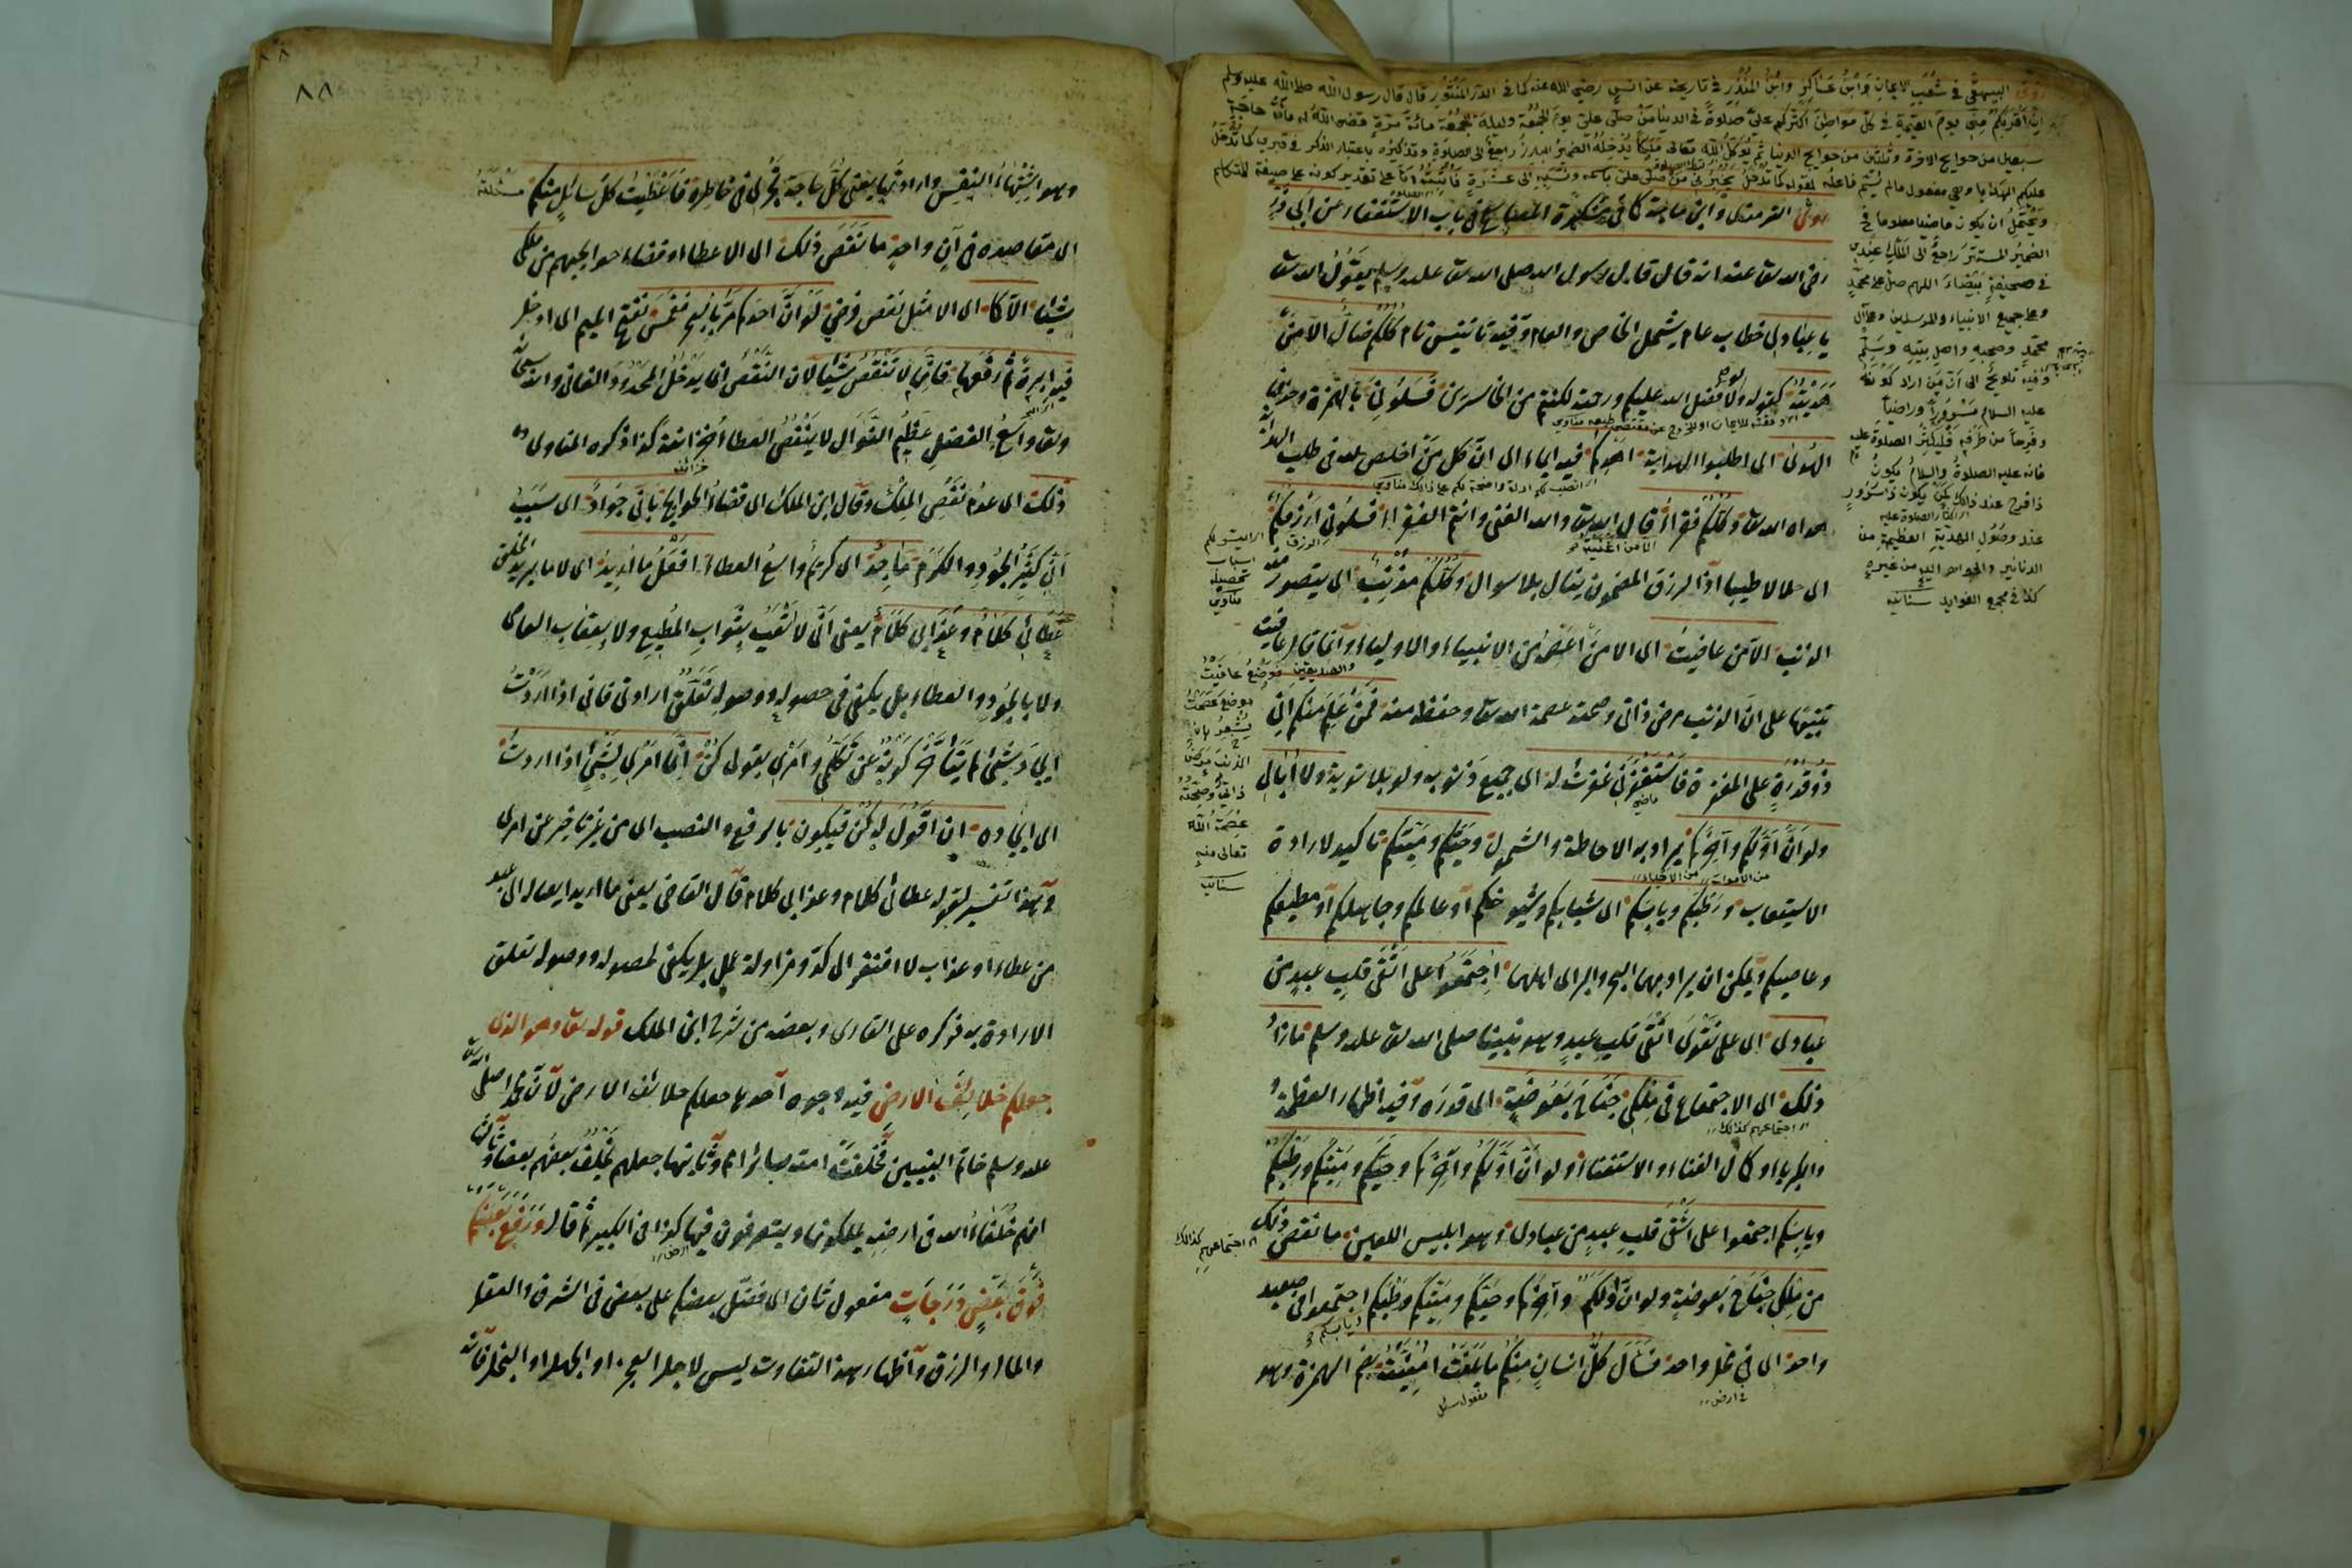 روى البيهقي في شعب الايمان وابن عساكر وابن المنذر في تاريخه عن انس رضي الله عنه كما في الدر المنثور قال قال رسول الله صلى الله عليه وسلم
ان اقربكم مني يوم القيمة في كل مواطن اكثركم علي صلوة في الدنيا من صلى علي يوم الجمعة وليلة الجمعة مائة مرة قضى الله له مائة حاجة
سبعين من حوايج الاخرة وثلثين من حوايج الدنيا ثم يوكل الله تعالى ملكا يدخله الضمير البارز راجع الى الصلوة وتذكيره باعتبار الذكر في قبري كما تدخل
عليكم الهدايا وهي مفعول مالم يسم فاعله لقوله كما تدخل يخبرني من صلى علي باسمه ونسبه الى عشرة فاثبته اما على تقدير كونه على صيغة المتكلم
ويحتمل ان يكون ماضيا معلوما في
الضمير المستتر راجع الى الملك عندي
في صحيفة بيضاء اللهم صل على محمد
وعلى جميع الانبياء والمرسلين وعلى آل
محمد وصحبه واهل بيته وسلم
وفيه تلويح الى ان من اراد كونه
عليه السلام مسرورا وراضيا
وفرحا من طرفه فليكثر الصلوة عليه
فانه عليه الصلوة والسلام يكون
ذا فرح عند ذلك كمن يكون ذا سرور
عند وصول الهدية العظيمة من
الدنانير والجواهر اليه من غيره
كذا في مجمع الفوايد سنانيه
روى الترمذي وابن ماجة كما في مشكوة المصابيح في باب الاستغفار عن ابي ذر
رضي الله تعالى عنه انه قال قال رسول الله صلى الله تعالى عليه وسلم يقول الله تعالى
يا عبادي خطاب عام يشمل الخاص والعام وفيه تانيس تام كلكم ضال الا من
هديته كقوله ولولا فضل الله عليكم ورحمته لكنتم من الخاسرين فسلوني بالهمزة وحذفها
الهدى اى اطلبوا الهداية اهدكم فيه ايماء الى ان كل من اخلص لله في طلب الهداية
هداه الله تعالى وكلكم فقراء قال الله تعالى والله الغني وانتم الفقراء فسلوني ارزقكم
اى حلالا طيبا اذ الرزق المضمون ينال بلا سوال وكلكم مذنب اى يتصور منه
الذنب الا من عافيت اى الا من اعصمه من الانبياء والاولياء وانما قال عافيت
تنبيها على ان الذنب مرض ذاتي وصحته عصمة الله تعالى وحفظه منه فمن علم منكم اني
ذو قدرة على المغفرة فاستغفرني غفرت له اى جميع ذنوبه ولو بلا توبة ولا ابالي
ولو ان اولكم وآخركم يراد به الاحاطة والشمول وحيكم وميتكم تاكيد لارادة
الاستيعاب ورطبكم ويابسكم اى شبابكم وشيوخكم او عالمكم وجاهلكم او مطيعكم
وعاصيكم ويمكن ان يراد بهما البحر والبر اى اهلهما اجتمعوا على اتقى قلب عبد من
عبادي اى على تقوى اتقى قلب عبد وهو نبينا صلى الله تعالى عليه وسلم ما زاد
ذلك اى الاجتماع في ملكي جناح بعوضة اى قدره وفيه اظهار العظمة
والكبرياء وكمال الغناء والاستغناء ولو ان اولكم وآخركم وحيكم وميتكم ورطبكم
ويابسكم اجتمعوا على اشقى قلب عبد من عبادي وهو ابليس اللعين ما نقص ذلك
من ملكي جناح بعوضة ولو ان اولكم وآخركم وحيكم وميتكم ورطبكم اجتمعوا في صعيد
واحد اى في محل واحد فسأل كل انسان منكم ما بلغت امنيته بضم الهمزة وهو
الا من اغنيته
من الاموات من الاحياء
اجتماعهم كذلك
ويابسكم
ارض
مفعول سئل
والصديقين فوضع عافيت
موضع عصمت
يشعر بان
الذنب مرض
ذاتي وصحته
عصمة الله
تعالى منه
سنانيه
اى اجتماعهم كذلك
٨٨
وهو اشتهاء النفس وارادتها يعني كل حاجة تجري في خاطره فاعطيت كل سائل منكم مسئلته
اى مقاصده في آن واحد ما نقص ذلك اى الاعطاء او قضاء حوايجهم من ملكي
شيئا الا كما اى الا مثل نقص فرضي لو ان احدكم مر بالبحر فغمس بفتح الميم اى ادخل
فيه ابرة ثم رفعها فانها لا تنقص شيئا لان النقص انما يدخل المحدود الفاني والله سبحانه
وتعالى واسع الفضل عظيم النوال لا ينقص العطاء خزائنه كذا ذكره المناوي
ذلك اى عدم نقص الملك وقال ابن الملك اى قضاء الحوايج باني جواد اى سبب
اني كثير الجود والكرم ماجد اى كريم واسع العطاء افعل ما اريد اى لا ما يريد الخلق
عطائي كلام وعذابي كلام يعني اني لا اتعب بثواب المطيع ولا بعقاب العاصي
ولا بالجود والعطاء بل يكفي في حصوله ووصوله تعلق ارادتي فاني اذا اردت
ايجاد شئ لم يتأخر كونه عن تكلمي وامري بقولي كن انما امري لشئ اذا اردت
اى ايجاده ان اقول له كن فيكون بالرفع والنصب اى من غير تاخير عن امري
وهذا تفسير لقوله عطائي كلام وعذابي كلام قال القاضي يعني ما اريد ايصاله الى عبد
من عطاء او عذاب لا افتقر الى كد ومزاولة عمل بل يكفي لحصوله ووصوله تعلق
الارادة به ذكره علي القاري وبعضه من شرح ابن الملك قوله تعالى وهو الذي
جعلكم خلائف الارض فيه وجوه احدها جعلكم خلائف الارض لان محمدا صلى الله تعالى
عليه وسلم خاتم النبيين فخلفت امته سائر الامم وثانيها جعلهم يخلف بعضهم بعضا وثالثها
انهم خلفاء الله في ارضه يملكونها ويتصرفون فيها كذا في الكبير ثم قال ورفع بعضكم
فوق بعض درجات مفعول ثان اى فضل بعضكم على بعض في الشرف والعقل
والمال والرزق واظهار هذا التفاوت ليس لاجل العجز او الجهل او البخل فانه